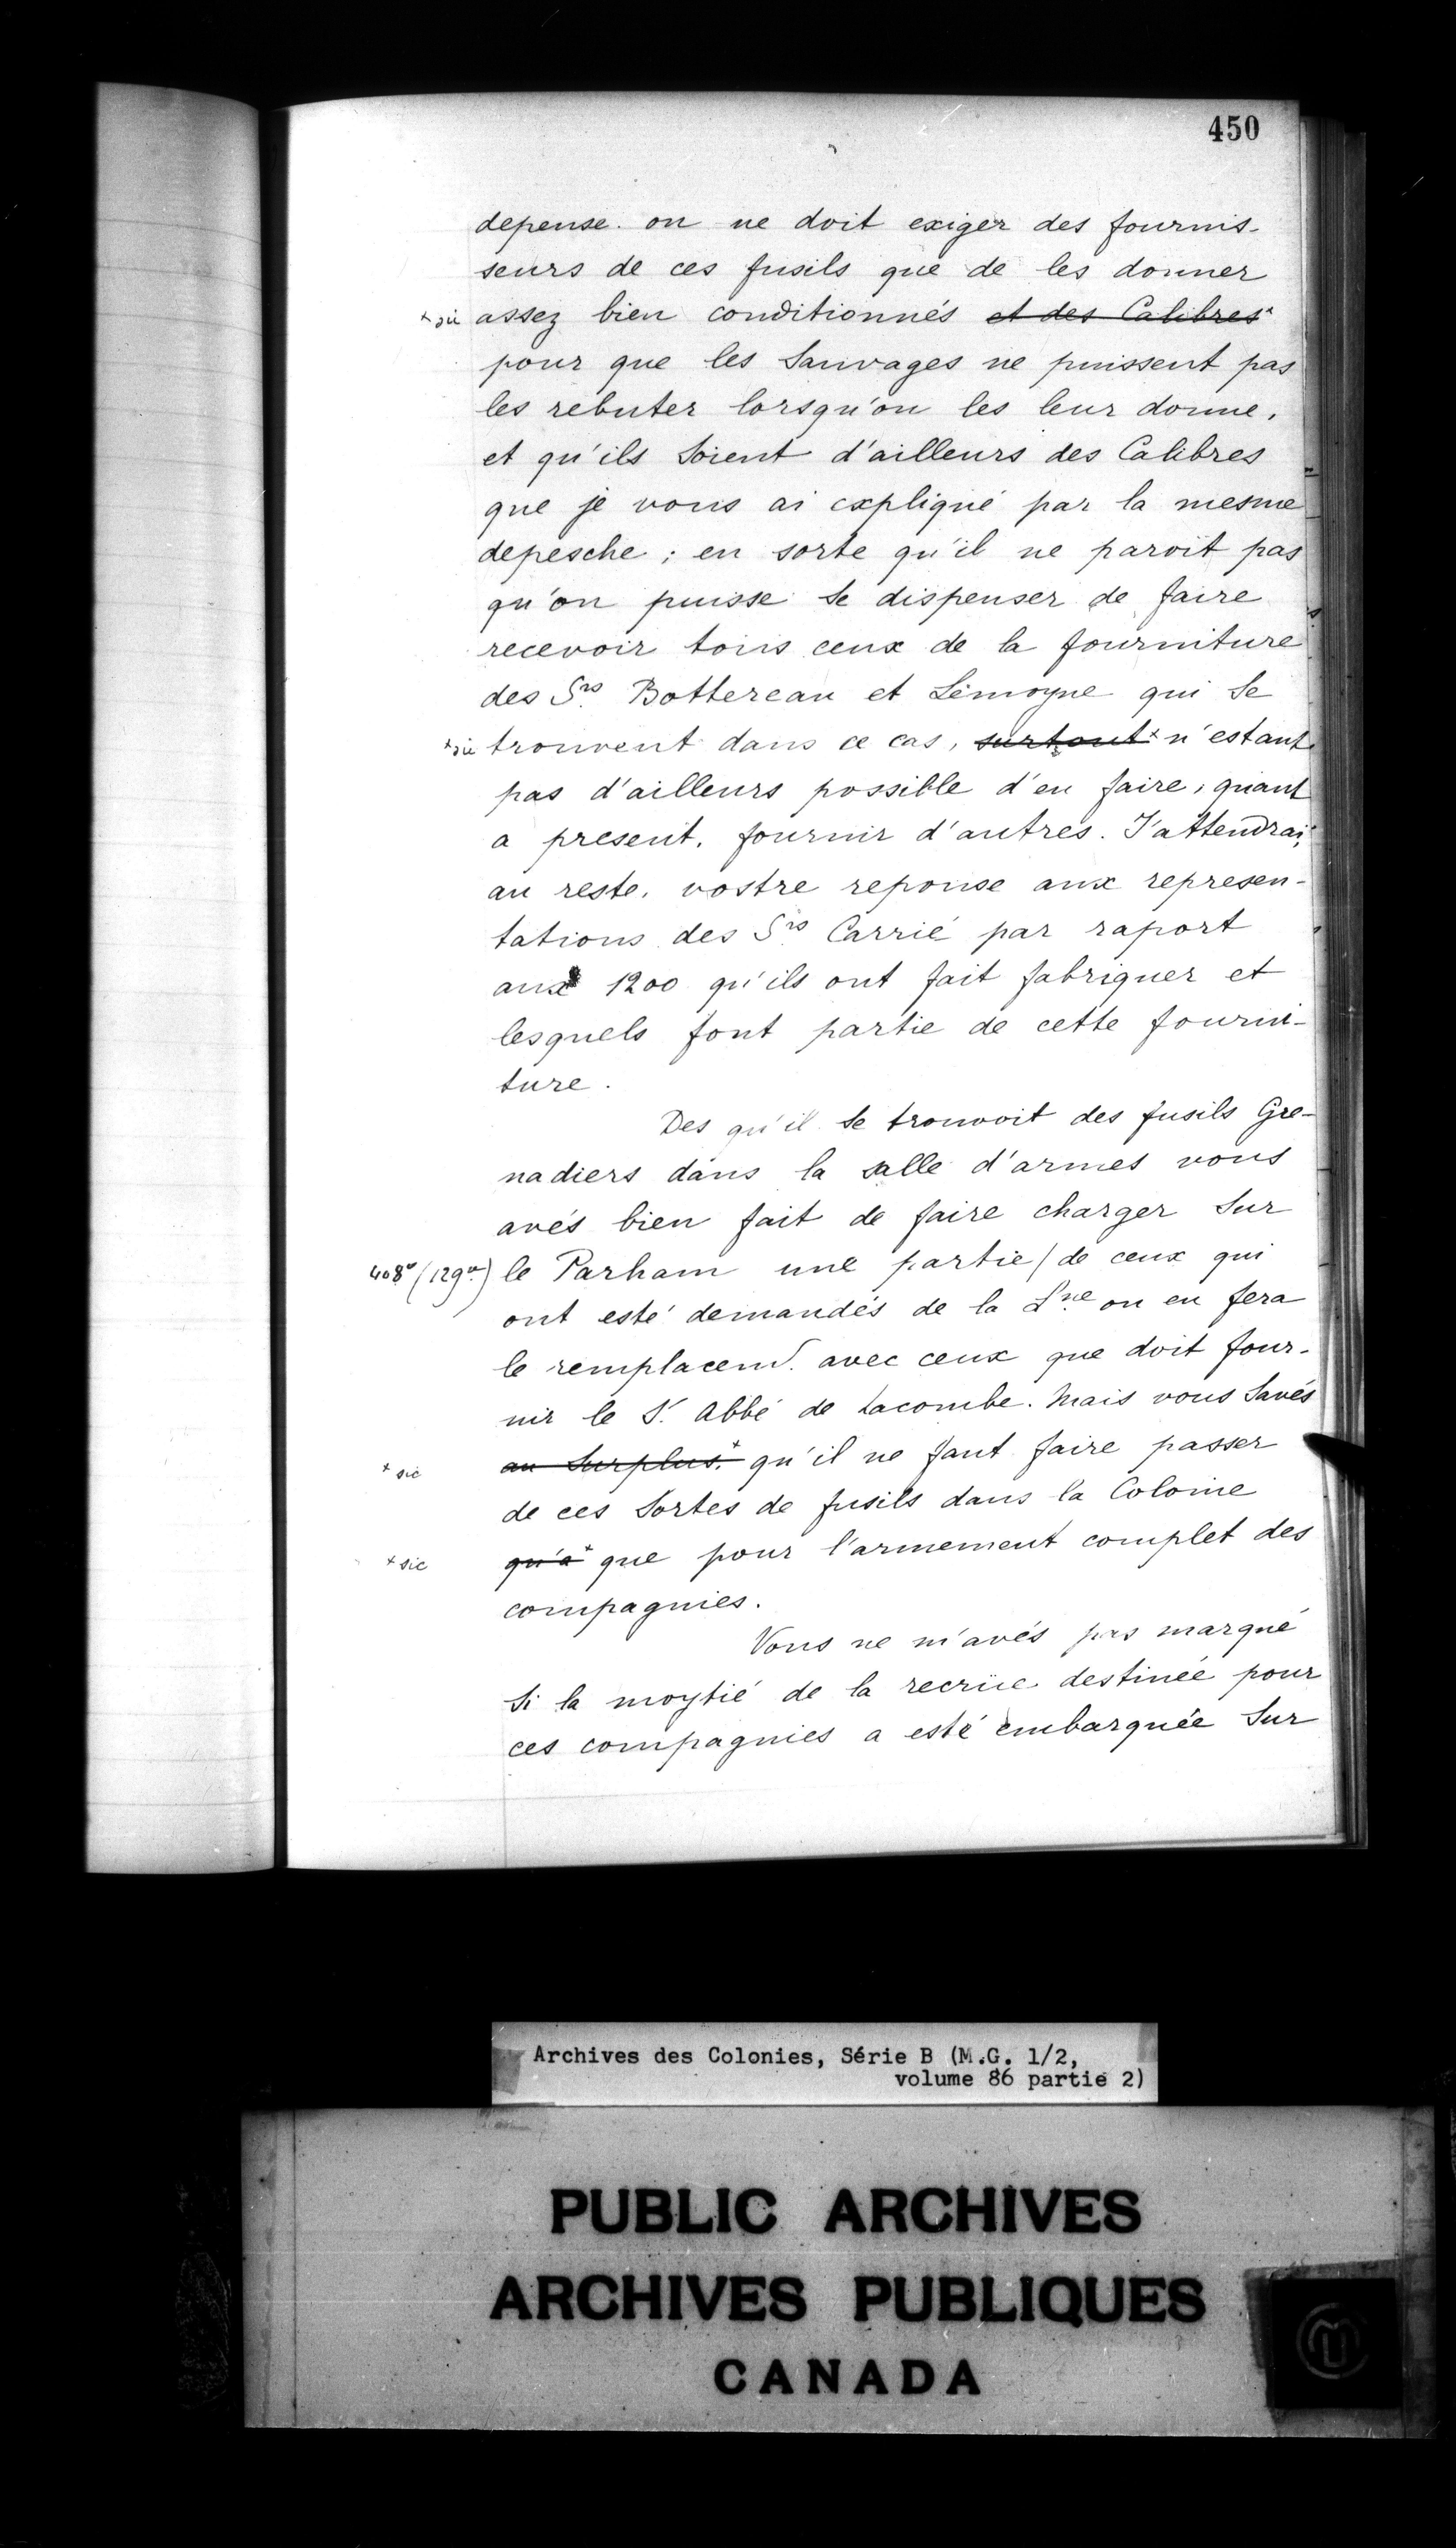 450
depense. on ne doit exiger des fournis-
seurs de ces fusils que de les donner
x sic assez bien conditionnés et des Calibres x
pour que les Sauvages ne puissent pas
les rebuter lorsqu'on les leur donne,
et qu'ils Soient d'ailleurs des Calibres
que je vous ai expliqué par la mesme
depesche ; en sorte qu'il ne paroit pas
qu'on puisse Se dispenser de faire
recevoir tous ceux de la fourniture
des Srs Bottereau et Lemoyne qui Se
x sic trouvent dans ce cas, surtout x n'estant
pas d'ailleurs possible d'en faire, quant
a present, fournir d'autres. J'attendrai,
au reste, vostre reponse aux represen-
tations des Srs Carrié par raport
aux 1200 qu'ils ont fait fabriquer et
lesquels font partie de cette fourni-
ture.
Des qu'il Se trouvoit des fusils Gre-
nadiers dans la salle d'armes vous
avés bien fait de faire charger Sur
408v (129v) le Parham une partie / de ceux qui
ont esté demandés de la Lne on en fera
le remplacemt. avec ceux que doit four-
nir le S. Abbé de Lacombe. Mais vous Savés
x sic au Surplus x qu'il ne faut faire passer
de ces Sortes de fusils dans la Colonie
x sic qu'a x que pour l'armement complet des
compagnies.
Vous ne m'avés pas marqué
Si la moytié de la recrüe destinée pour
ces compagnies a esté embarquée Sur
Archives des Colonies, Série B (M.G. 1/2,
volume 86 partie 2)
PUBLIC ARCHIVES
ARCHIVES PUBLIQUES
CANADA